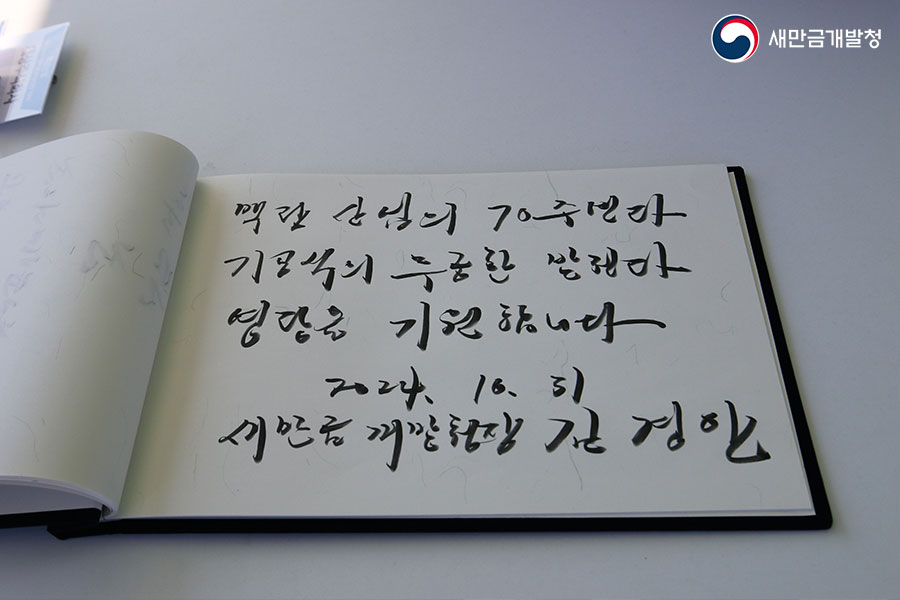 새만금개발청
백광 산업의 70주년과
기공식의 무궁한 발전과
영광을 기원합니다
2024. 10. 31
새만금 개발청장 김 경 안